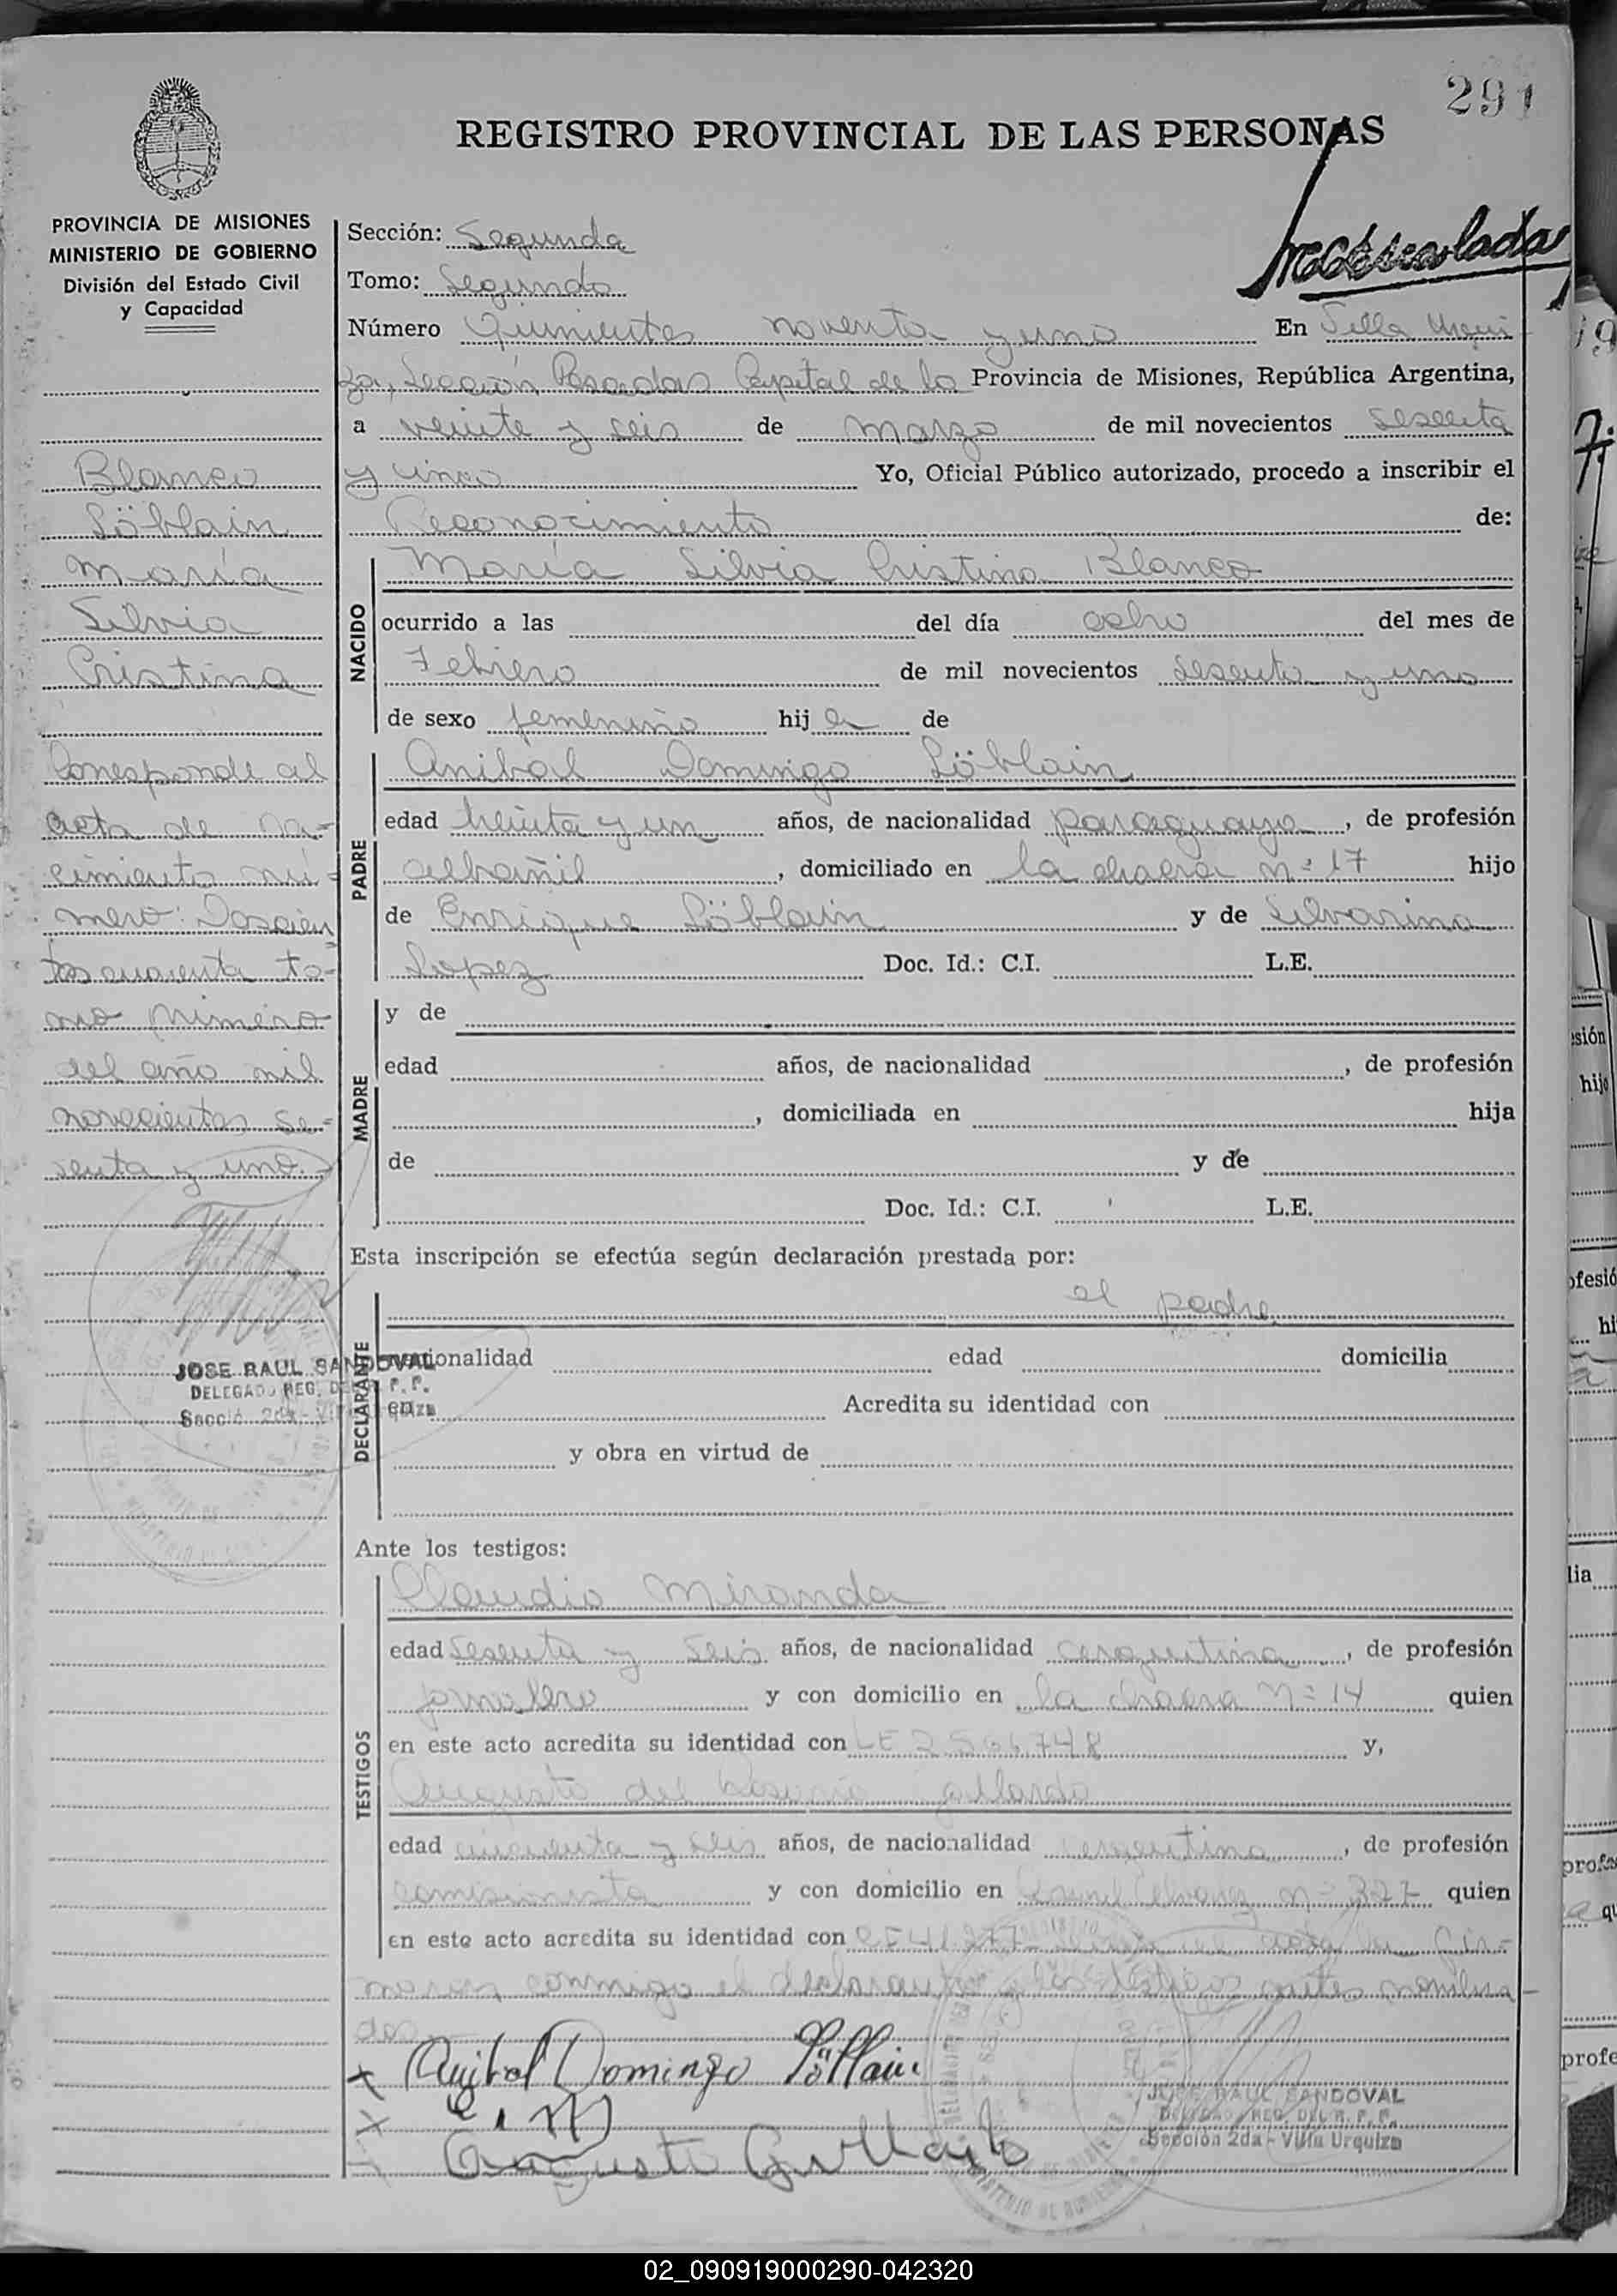 291
REGISTRO PROVINCIAL DE LAS PERSONAS
PROVINCIA DE MISIONES
MINISTERIO DE GOBIERNO
División del Estado Civil
y Capacidad
Blanco
Löblain
María
Silvia
Cristina
Corresponde al
acta de na-
cimiento nú-
mero: Doscien
tos cuarenta to-
mo primero
del año mil
novecientos se-
senta y uno.-
JOSE RAUL SANDOVAL
DELEGADO REG. DEL R. P. P.
Sección 2da - Villa Urquiza
Sección: Segunda
Tomo: Segundo
Número Quinientos noventa y uno En Villa Urqui-
za, Sección Posadas Capital de la Provincia de Misiones, República Argentina,
a veinte y seis de marzo de mil novecientos sesenta
y cinco Yo, Oficial Público autorizado, procedo a inscribir el
Reconocimiento de:
NACIDO
María Silvia Cristina Blanco
ocurrido a las del día ocho del mes de
Febrero de mil novecientos sesenta y uno
de sexo femenino hij a de
PADRE
Anibal Domingo Löblain
edad treinta y un años, de nacionalidad paraguaya, de profesión
albañil, domiciliado en la chacra nº 17 hijo
de Enrique Löblain y de Silvarina
Lopez Doc. Id.: C.I. L.E.
MADRE
y de
edad años, de nacionalidad , de profesión
, domiciliada en hija
de y de
Doc. Id.: C.I. L.E.
Esta inscripción se efectúa según declaración prestada por:
DECLARANTE
el padre
nacionalidad edad domicilia
en Acredita su identidad con
y obra en virtud de
Ante los testigos:
TESTIGOS
Claudio Miranda
edad sesenta y seis años, de nacionalidad argentina, de profesión
jornalero y con domicilio en la chacra Nº 14 quien
en este acto acredita su identidad con LE y,
Augusto del Rosario Gallardo
edad cincuenta y seis años, de nacionalidad argentina, de profesión
comisionista y con domicilio en nº 327 quien
en este acto acredita su identidad con acta la fir-
maron conmigo el declarante y los testigos antes nombra-
dos
Anibal Domingo Löblain
Augusto Gallardo
JOSE RAUL SANDOVAL
DELEGADO REG. DEL R. P. P.
Sección 2da - Villa Urquiza
02_090919000290-042320